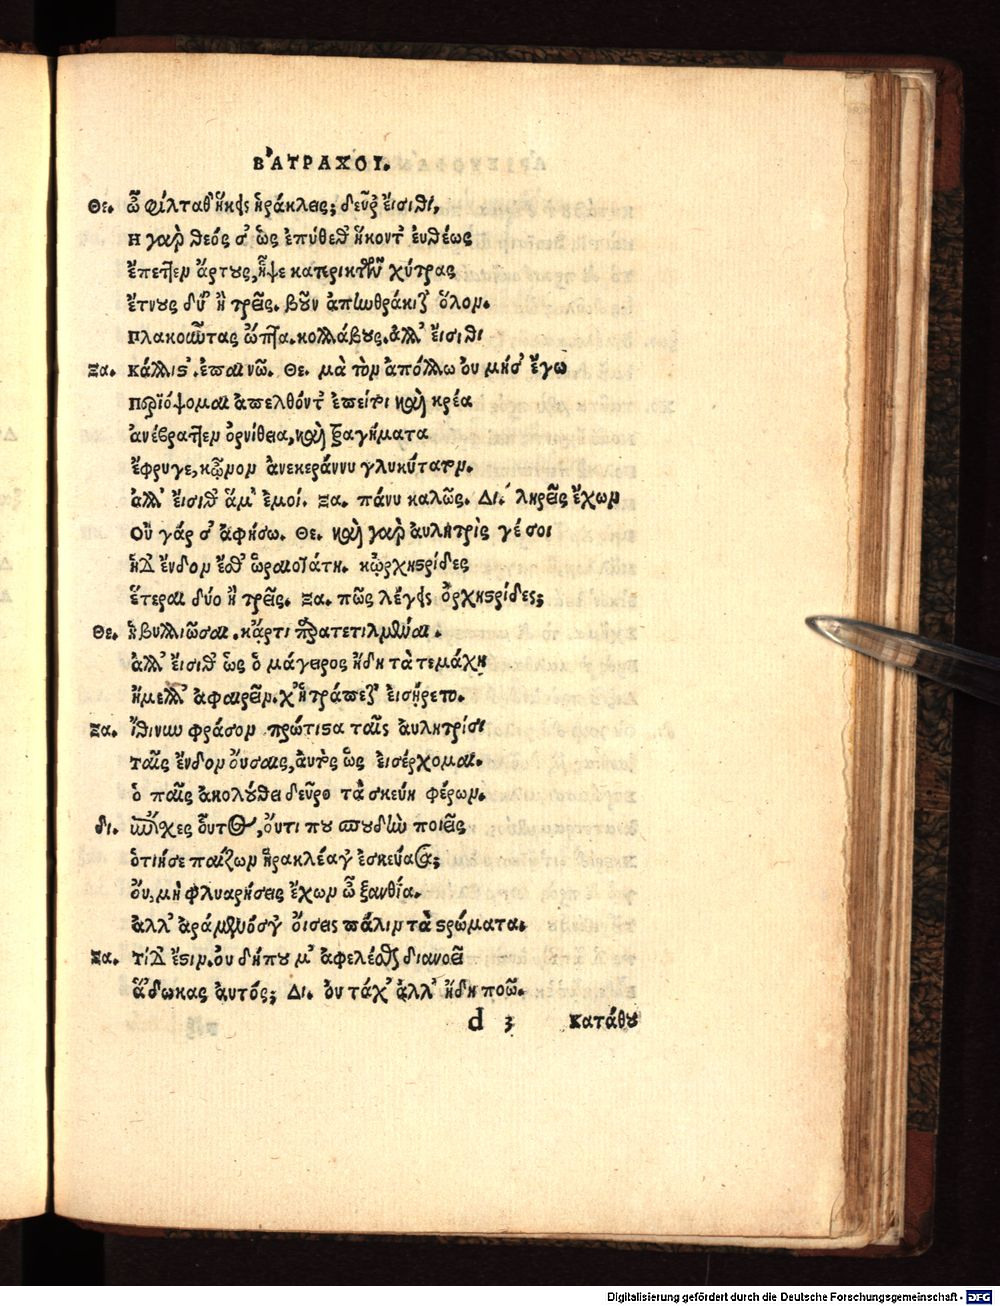 ΒΆΤΡΑΧΟΙ.
Θε. ὦ φίλταθ' ἥκεις ἡράκλεις; δεῦρ' εἴσιθι,
Η γὰρ θεός σ' ὡς ἐπύθεθ' ἥκοντ' ἐυθέως
ἔπεττεν ἄρτους, ἧψε κατερικτῶν χύτρας
ἔτνους δύ' ἢ τρεῖς. βοῦν ἀπηνθράκιζ' ὅλον.
Πλακοῦντας ὤπτα. κολλάβους. ἀλλ' εἴσιθι
Ξα. Κάλλιστ'. ἐπαινῶ. Θε. μὰ τὸν ἀπόλλω ὀυ μήσ' ἔγω
Περιόψομαι ἀπελθόντ' ἐπείτοι καὶ κρέα
ἀνέβραττεν ὀρνίθεια, καὶ τραγήματα
ἔφρυγε, κᾦνον ἀνεκεράννυ γλυκύτατον.
ἀλλ' εἴσιθ' ἅμ' ἐμοί. Ξα. πάνυ καλῶς. Δι. ληρεῖς ἔχων
Οὐ γάρ σ' ἀφήσω. Θε. καὶ γὰρ ἀυλητρὶς γέ σοι
ἥδ' ἔνδον ἔσθ' ὡραιοτάτη. κᾠρχηστρίδες
ἕτεραι δύο ἢ τρεῖς. Ξα. πῶς λέγεις ὀρχηστρίδες;
Θε. ἡβυλλιῶσαι. κἄρτι παρατετιλμέναι.
ἀλλ' εἴσιθ' ὡς ὁ μάγειρος ἤδη τὰ τεμάχη
ἤμελλ' ἀφαιρεῖν. χ' ἡ τράπεζ' εἰσῄρετο.
Ξα. ἴθι νῦν φράσον πρώτιστα ταῖς ἀυλητρίσι
ταῖς ἔνδον ὄυσαις, ἀυτὸς ὡς εἰσέρχομαι.
ὁ παῖς ἀκολούθει δεῦρο τὰ σκεύη φέρων.
δι. ἐπίσχες ὅυτος, ὄυτι που σπουδὴν ποιεῖς
ὁτιήσε παίζων ἡρακλέα γ' ἐσκεύασα;
ὄυ, μὴ φλυαρήσεις ἔχων ὦ ξανθία.
ἀλλ' ἀράμενός γ' ὄισεις πάλιν τὰ στρώματα.
Ξα. τί δ' ἔστιν. ὀυ δήπου μ' ἀφελέσθαι διανοεῖ
ἅ 'δωκας ἀυτός; Δι. ὀυ τάχ' ἀλλ' ἤδη ποῶ.
d 3 Κατάθου
Digitalisierung gefördert durch die Deutsche Forschungsgemeinschaft - DFG